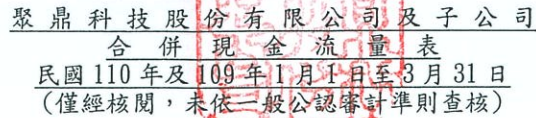 聚鼎科技股份有限公司及子公司
合併現金流量表
民國110年及109年1月1日至3月31日
(僅經核閱，未依一般公認審計準則查核)